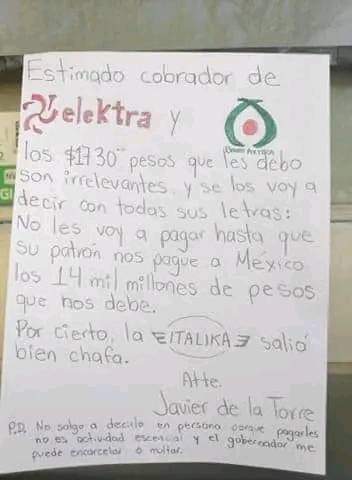 Estimado cobrador de
elektra y
BANCO AZTECA
los $1730 pesos que les debo
son irrelevantes y se los voy a
decir con todas sus letras:
No les voy a pagar hasta que
su patrón nos pague a México
los 14 mil millones de pesos
que nos debe.
Por cierto, la ITALIKA salió
bien chafa.
Atte.
Javier de la Torre
P.D. No salgo a decirlo en persona porque pagarles
no es actividad escencial y el gobernador me
puede encarcelar o multar.